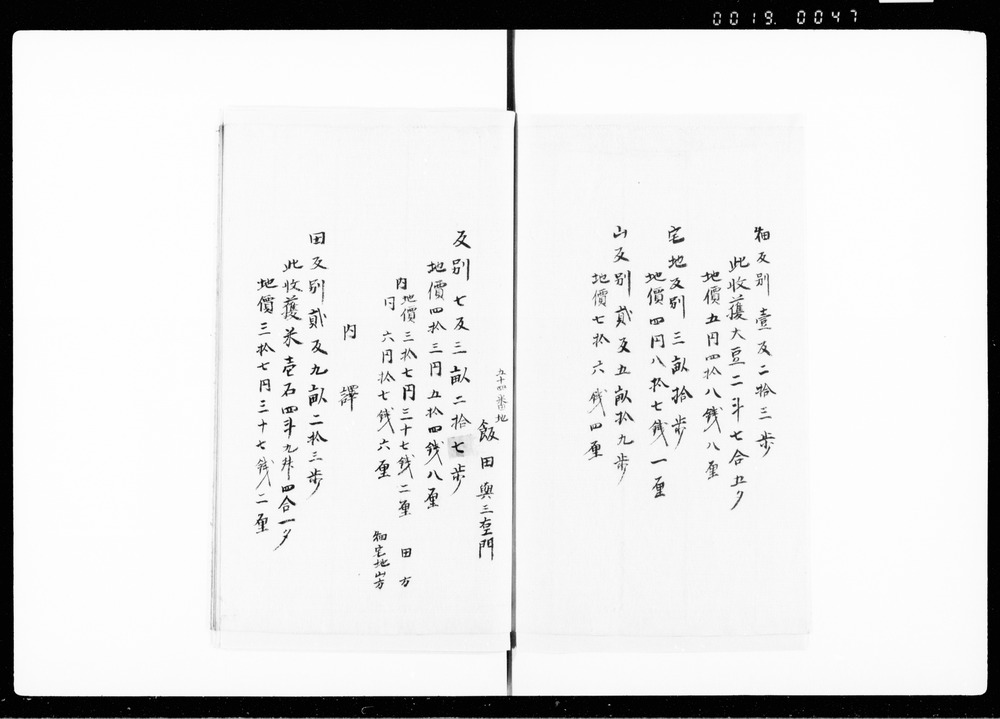 0019. 0047
畑反別壹反二拾三步
此收穫大豆二斗七合五夕
地價五円四拾八錢八厘
宅地反別三畝拾步
地價四円八拾七錢一厘
山反別貳反五畝拾九步
地價七拾六錢四厘
五十四番地
飯田與三左門
反別七反三畝二拾七步
地價四拾三円五拾四錢八厘
内地價三拾七円三十七錢二厘 田方
同六円拾七錢六厘 畑宅地山方
内譯
田反別貳反九畝二拾三步
此收穫米壱石四斗九升四合一夕
地價三拾七円三十七錢二厘